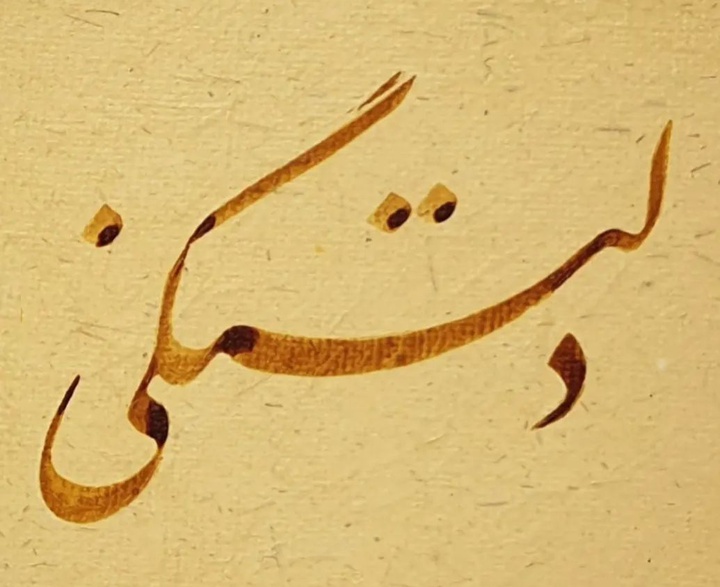 دلتنگی